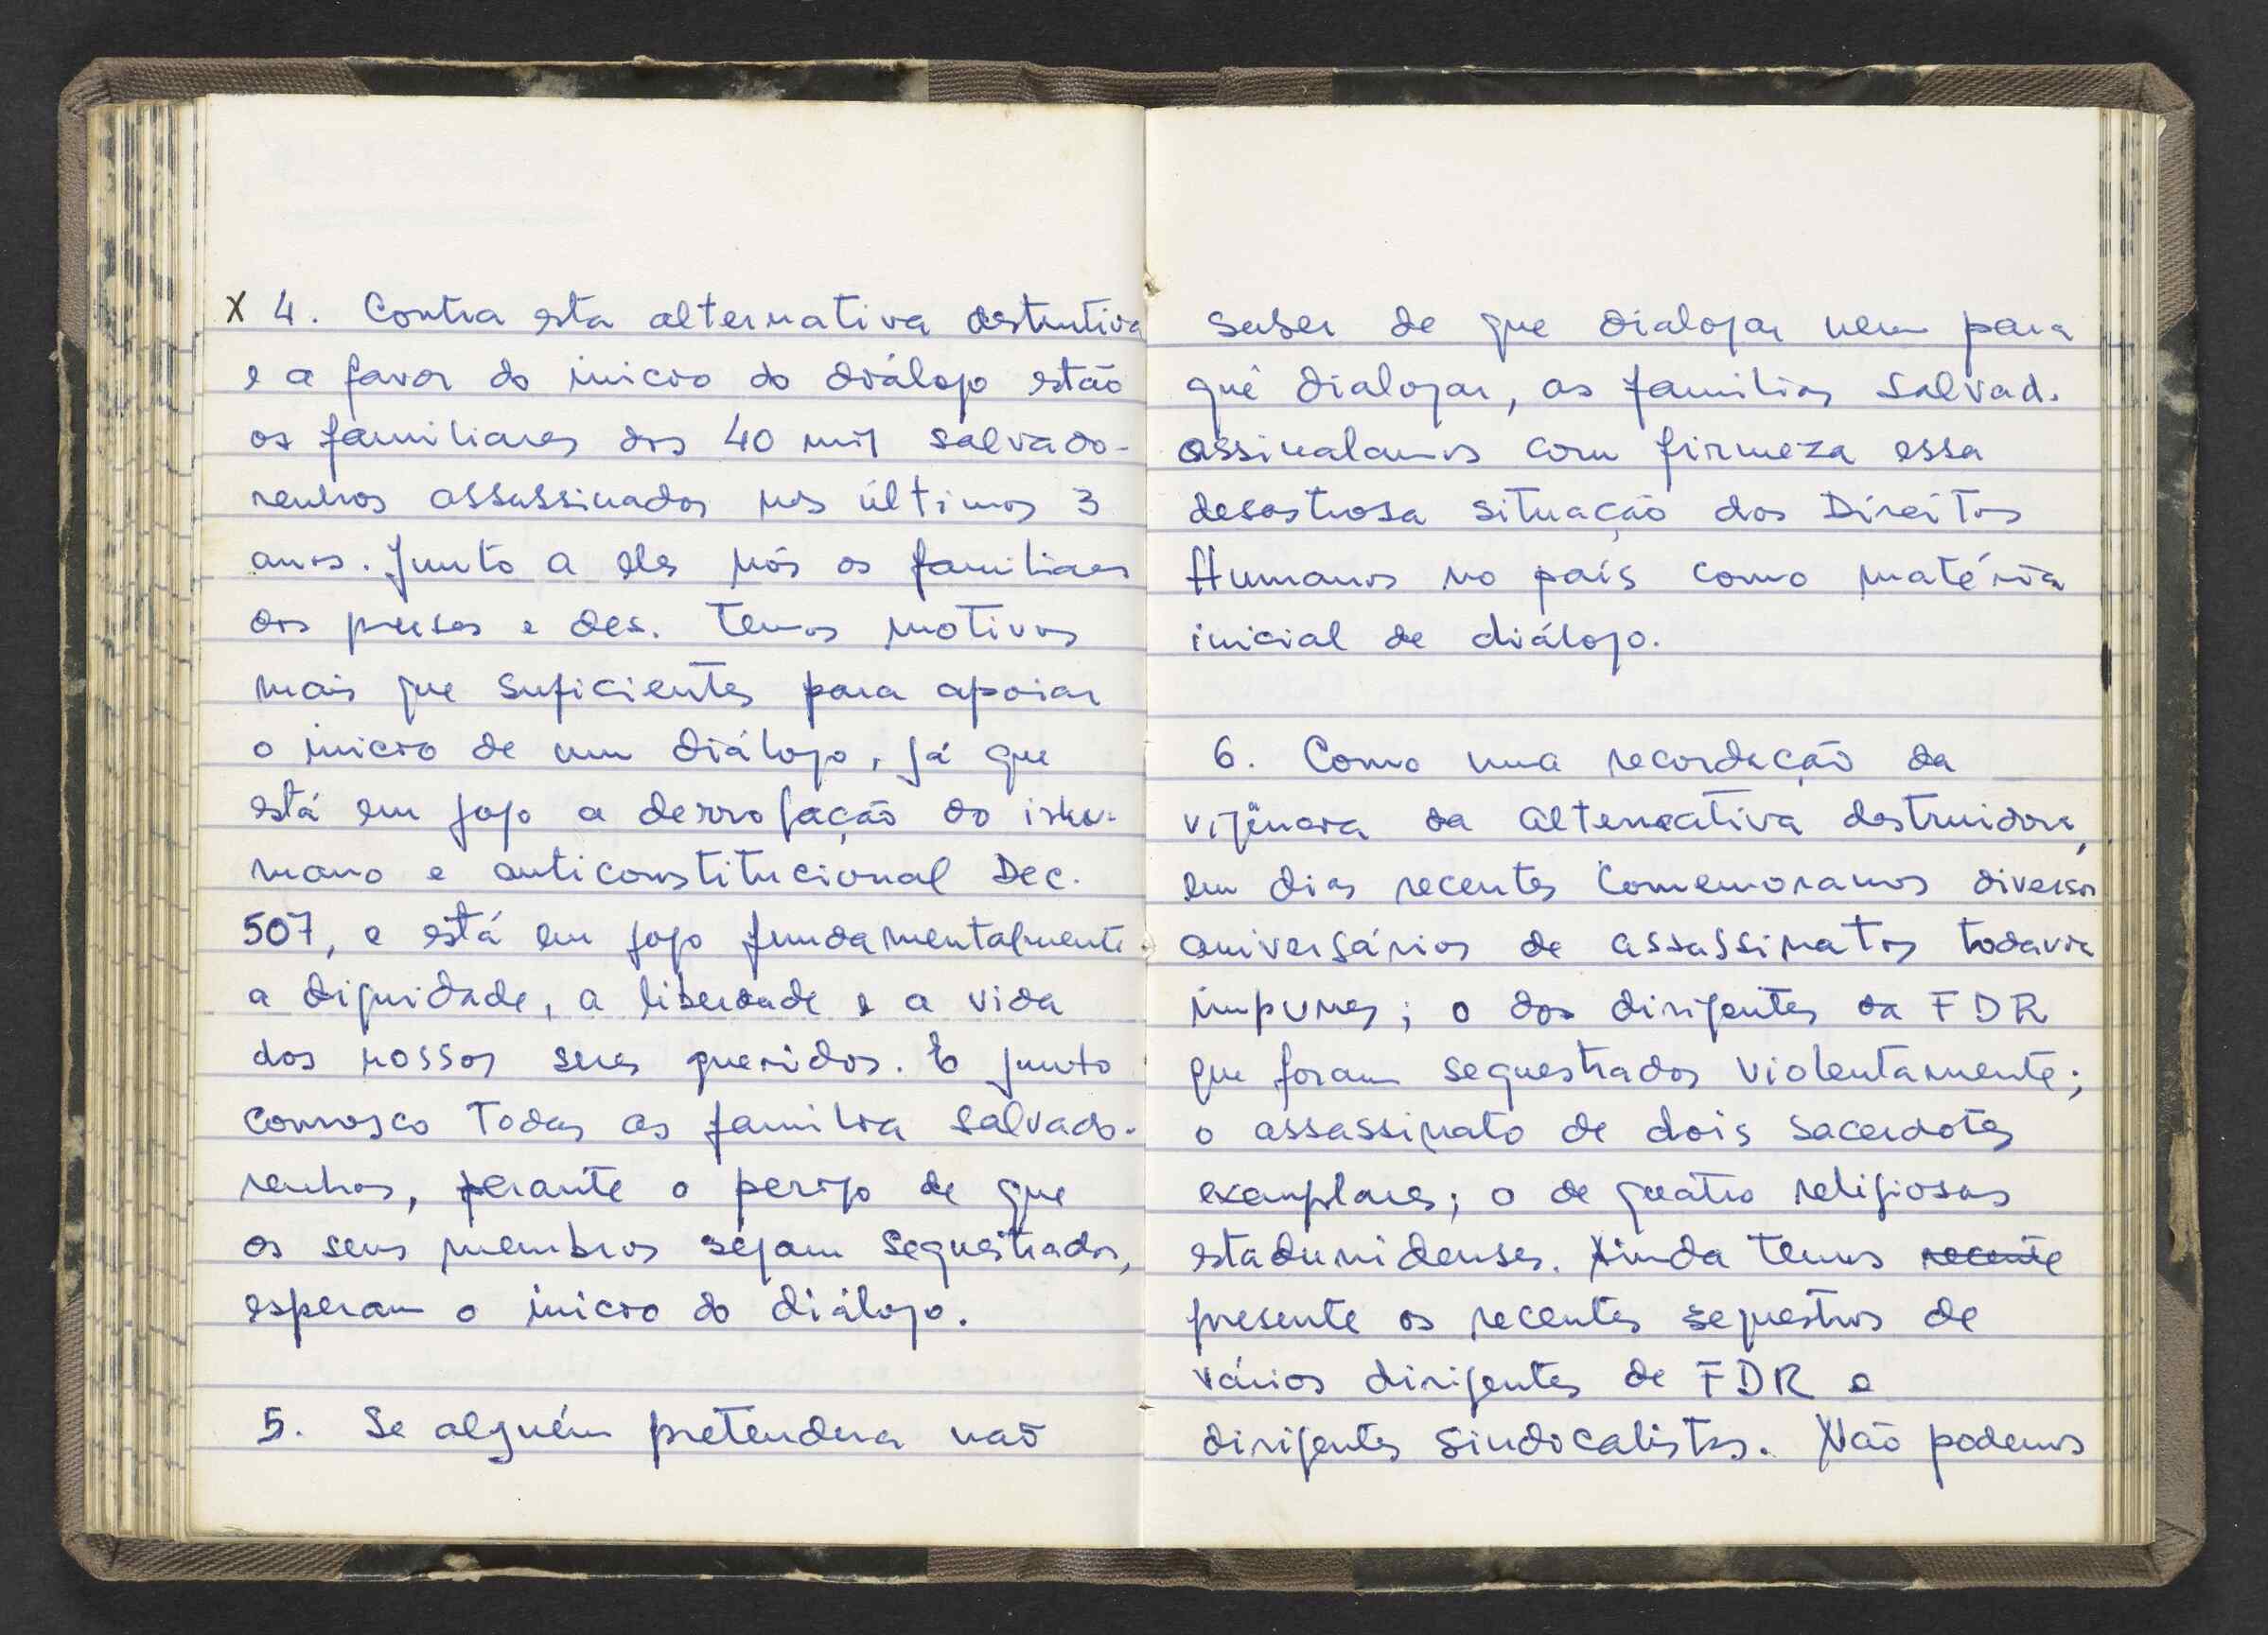 X 4. Contra esta alternativa destrutiva
e a favor do início do diálogo estão
os familiares dos 40 mil salvado-
renhos assassinados nos últimos 3
anos. Junto a eles nós os familiares
dos presos e des. temos motivos
mais que suficientes para apoiar
o início de um diálogo, já que
está em jogo a derrogação do inhu-
mano e anticonstitucional Dec.
507, e está em jogo fundamentalmente
a dignidade, a liberdade e a vida
dos nossos seres queridos. E junto
conosco todas as família salvado-
renhas, perante o perigo de que
os seus membros sejam sequestrados,
esperam o início do diálogo.
5. Se alguém pretendera naõ
saber de que dialogar nem para
quê dialogar, as famílias salvad.
assinalamos com firmeza essa
desastrosa situação dos Direitos
Humanos no país como matéria
inicial de diálogo.
6. Como uma recordação da
vigência da alternativa destruidora,
em dias recentes comemoramos diversos
aniversários de assassinatos todavia
impunes; o dos dirigentes da FDR
que foram sequestrados violentamente;
o assassinato de dois sacerdotes
exemplares; o de quatro religiosas
estadunidenses. Ainda temos recente
presente os recentes sequestros de
vários dirigentes de FDR e
dirigentes sindicalistas. Não podemos